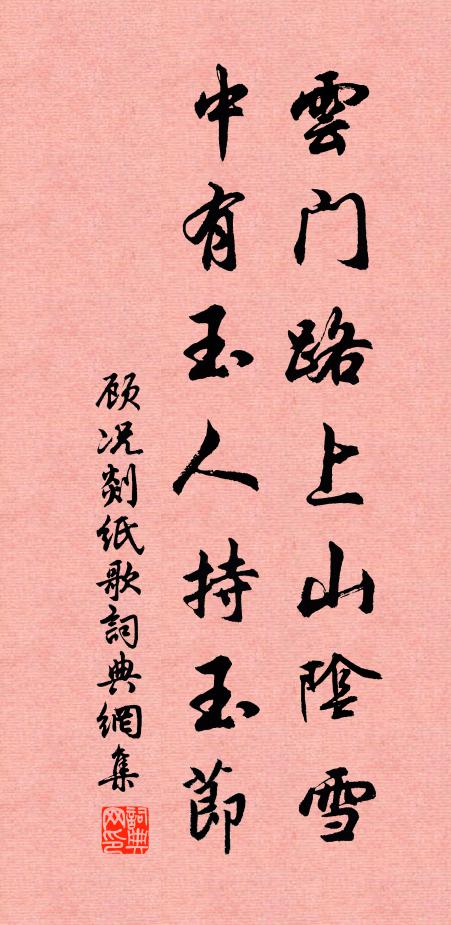 雲门路上山陰雪
中有玉人持玉節
顾况剡纸歌詞典網集
詞典网印